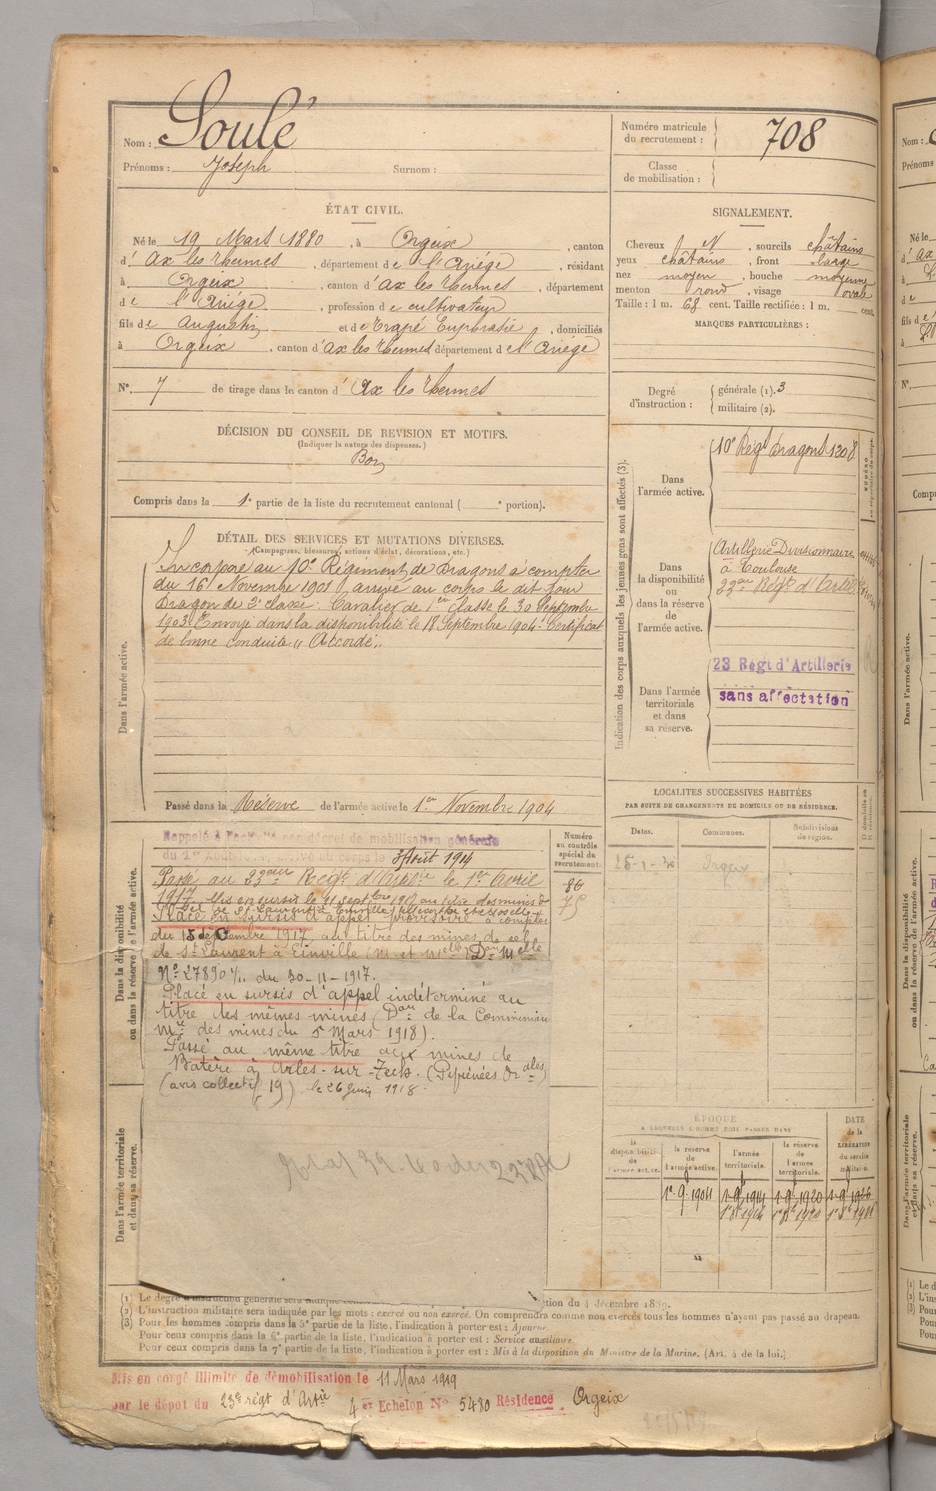 Nom : Soulé
Prénoms : Joseph Surnom :
Numéro matricule du recrutement : 708
Classe de mobilisation :
ÉTAT CIVIL.
Né le 19 Mars 1880, à Orgeix, canton
d'Ax les Thermes, département de l'Ariége, résidant
à Orgeix, canton d'Ax les Thermes, département
de l'Ariége, profession de cultivateur
fils de Augustin et de Trapé Euphrasie, domiciliés
à Orgeix, canton d'Ax les Thermes département de l'Ariége
N° 7 de tirage dans le canton d'Ax les Thermes
SIGNALEMENT.
Cheveux N, sourcils châtains
yeux châtains, front large
nez moyen, bouche moyenne
menton rond, visage ovale
Taille : 1 m. 68 cent. Taille rectifiée : 1 m. cent.
MARQUES PARTICULIÈRES :
Degré d'instruction : générale (1). 3
militaire (2).
DÉCISION DU CONSEIL DE REVISION ET MOTIFS.
(Indiquer la nature des dispenses.)
Bon
Compris dans la 1e partie de la liste du recrutement cantonal ( e portion).
DÉTAIL DES SERVICES ET MUTATIONS DIVERSES.
(Campagnes, blessures, actions d'éclat, décorations, etc.)
Dans l'armée active.
Incorporé au 10e Régiment de Dragons à compter
du 16 Novembre 1901, arrivé au corps le dit jour
Dragon de 2e classe. Cavalier de 1ère classe le 30 Septembre
1903 Envoyé dans la disponibilité le 18 Septembre 1904. Certificat
de bonne conduite "Accordé".
Passé dans la Réserve de l'armée active le 1er Novembre 1904
Indication des corps auxquels les jeunes gens sont affectés (3).
Dans l'armée active.
10e Régt Dragons 1208
Dans la disponibilité ou dans la réserve de l'armée active.
Artillerie Divisionnaire
à Toulouse
23ème Régt d'Artie
Dans l'armée territoriale et dans sa réserve.
23 Régt d'Artillerie
sans affectation
LOCALITÉS SUCCESSIVES HABITÉES
PAR SUITE DE CHANGEMENTS DE DOMICILE OU DE RÉSIDENCE.
Dates. Communes. Subdivisions de région.
Orgeix
Dans la disponibilité ou dans la réserve de l'armée active.
Numéro au contrôle spécial du recrutement.
86
75
Rappelé à l'activité par décret de mobilisation générale
du 1er Août 1914, arrivé au corps le 3 Août 1914
Passé au 23ème Régt d'Artie le 1er Avril
1917. Mis en sursis le 11 septbre 1917 au titre des mines de
Placé en sursis d'appel provisoire à compter
du 15 septembre 1917, au titre des mines de sel
de St Laurent à Einville
No 27890 1/11 du 30-11-1917.
Placé en sursis d'appel indéterminé au
titre des mêmes mines (Don de la Commission
des mines du 5 Mars 1918).
Passé au même titre aux mines de
Batère à Arles-sur-Tech. (Pyrénées Orales)
(avis collectif 19) le 26 Juin 1918.
Dans l'armée territoriale et dans sa réserve.
ÉPOQUE
À LAQUELLE L'HOMME DOIT PASSER DANS
la disponibilité de l'armée active. la réserve de l'armée active. l'armée territoriale. la réserve de l'armée territoriale.
DATE de la LIBÉRATION du service militaire.
1-9-1904 1-9-1914 1-9-1920 1-9-1926
(1) Le degré d'instruction générale sera indiqué
(2) L'instruction militaire sera indiquée par les mots : exercé ou non exercé. On comprendra comme non exercés tous les hommes n'ayant pas passé au drapeau.
(3) Pour les hommes compris dans la 5e partie de la liste, l'indication à porter est : Ajourné.
Pour ceux compris dans la 6e partie de la liste, l'indication à porter est : Service auxiliaire.
Pour ceux compris dans la 7e partie de la liste, l'indication à porter est : Mis à la disposition du Ministre de la Marine. (Art. 4 de la loi.)
Mis en congé illimité de démobilisation le 11 Mars 1919
par le dépôt du 23e régt d'Artie 4e Echelon N° 5480 Résidence Orgeix